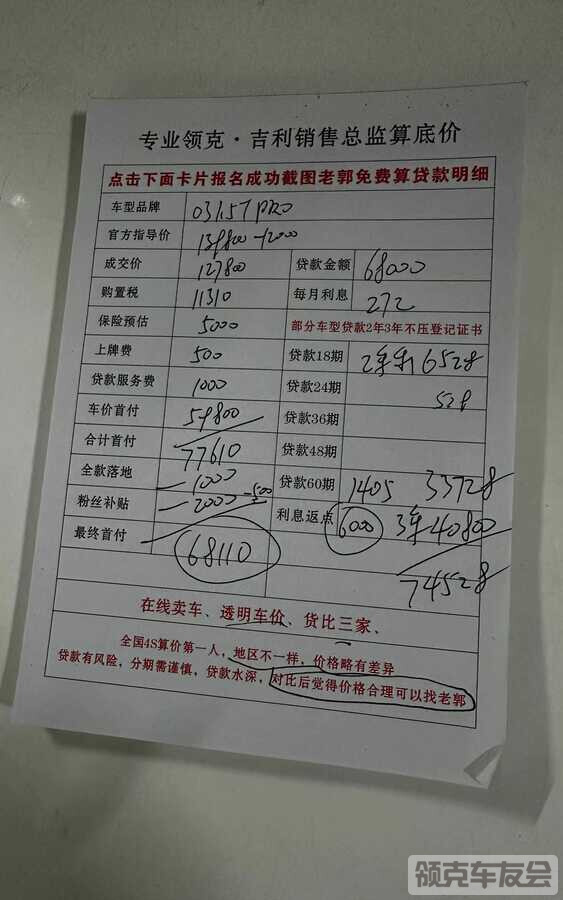 专业领克·吉利销售总监算底价
点击下面卡片报名成功截图老郭免费算贷款明细
车型品牌 03 1.5T PRO
官方指导价 139800-12000
成交价 127800 贷款金额 68000
购置税 11310 每月利息 272
保险预估 5000 部分车型贷款2年3年不压登记证书
上牌费 500 贷款18期 2年利 6528
贷款服务费 1000 贷款24期 528
车价首付 59800 贷款36期
合计首付 77610 贷款48期
全款落地 1000 贷款60期 1405 33728
粉丝补贴 2000 -500 利息返点 6000 3年 40800
最终首付 68110 74528
在线卖车、透明车价、货比三家、
全国4S算价第一人，地区不一样，价格略有差异
贷款有风险，分期需谨慎，贷款水深，对比后觉得价格合理可以找老郭
领克车友会